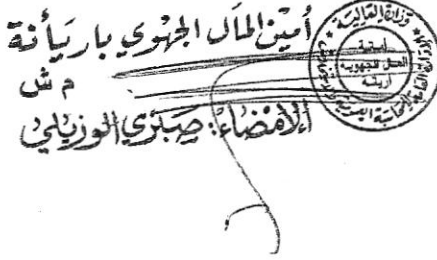 أمين المال الجهوي باريانة
م ش
الامضاء: صبري الوزيلي
وزارة المالية
أمانة
المال الجهوية
أريانة